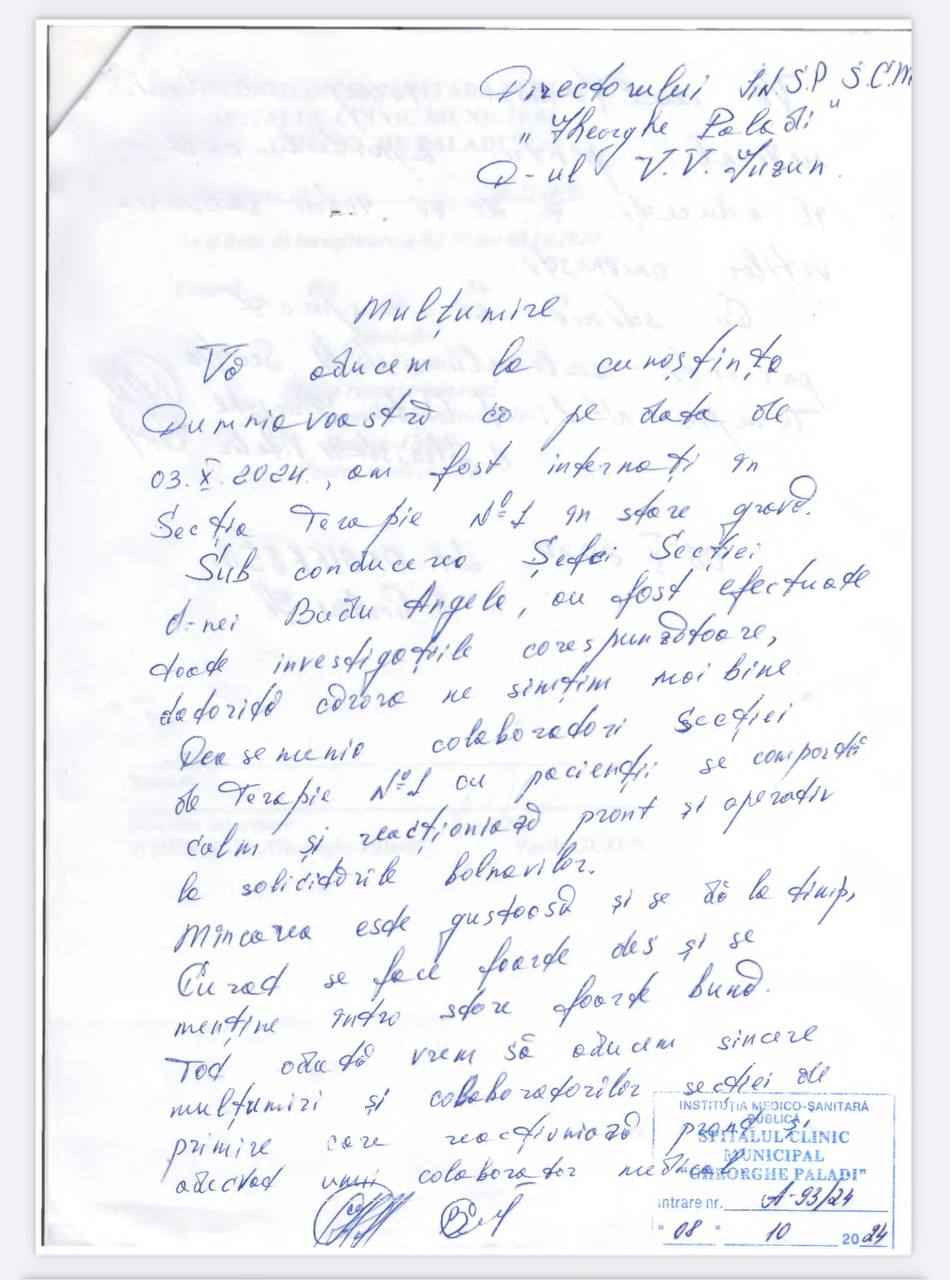 Directorului IMSP SCM
"Gheorghe Paladi"
D-ul V. V. Guzun.
Mulțumire
Vă aducem la cunoștința
Dumniavoastră că pe data de
03. X. 2024., am fost internați în
Secția Terapie Nº1 în stare gravă.
Sub conducerea Șefei Secției
d-nei Budu Angela, au fost efectuate
toate investigațiile corespunzătoare,
datorită cărora ne simțim mai bine
Deasemenia colaboradori Secției
de Terapie Nº1 cu pacienții se comportă
calm și reacționiază pront și operativ
la solicitările bolnavilor.
Mîncarea este gustoasă și se dă la timp,
Curat se face foarte des și se
menține întro stare foarte bună.
Tot odată vrem să aducem sincere
mulțumiri și colaboratorilor secției de
primire care reacțiuniază pront și
adecvat unui colaborator medical
INSTITUȚIA MEDICO-SANITARĂ
PUBLICĂ
SPITALUL CLINIC
MUNICIPAL
GHEORGHE PALADI"
intrare nr. A-93/24
"08" 10 2024